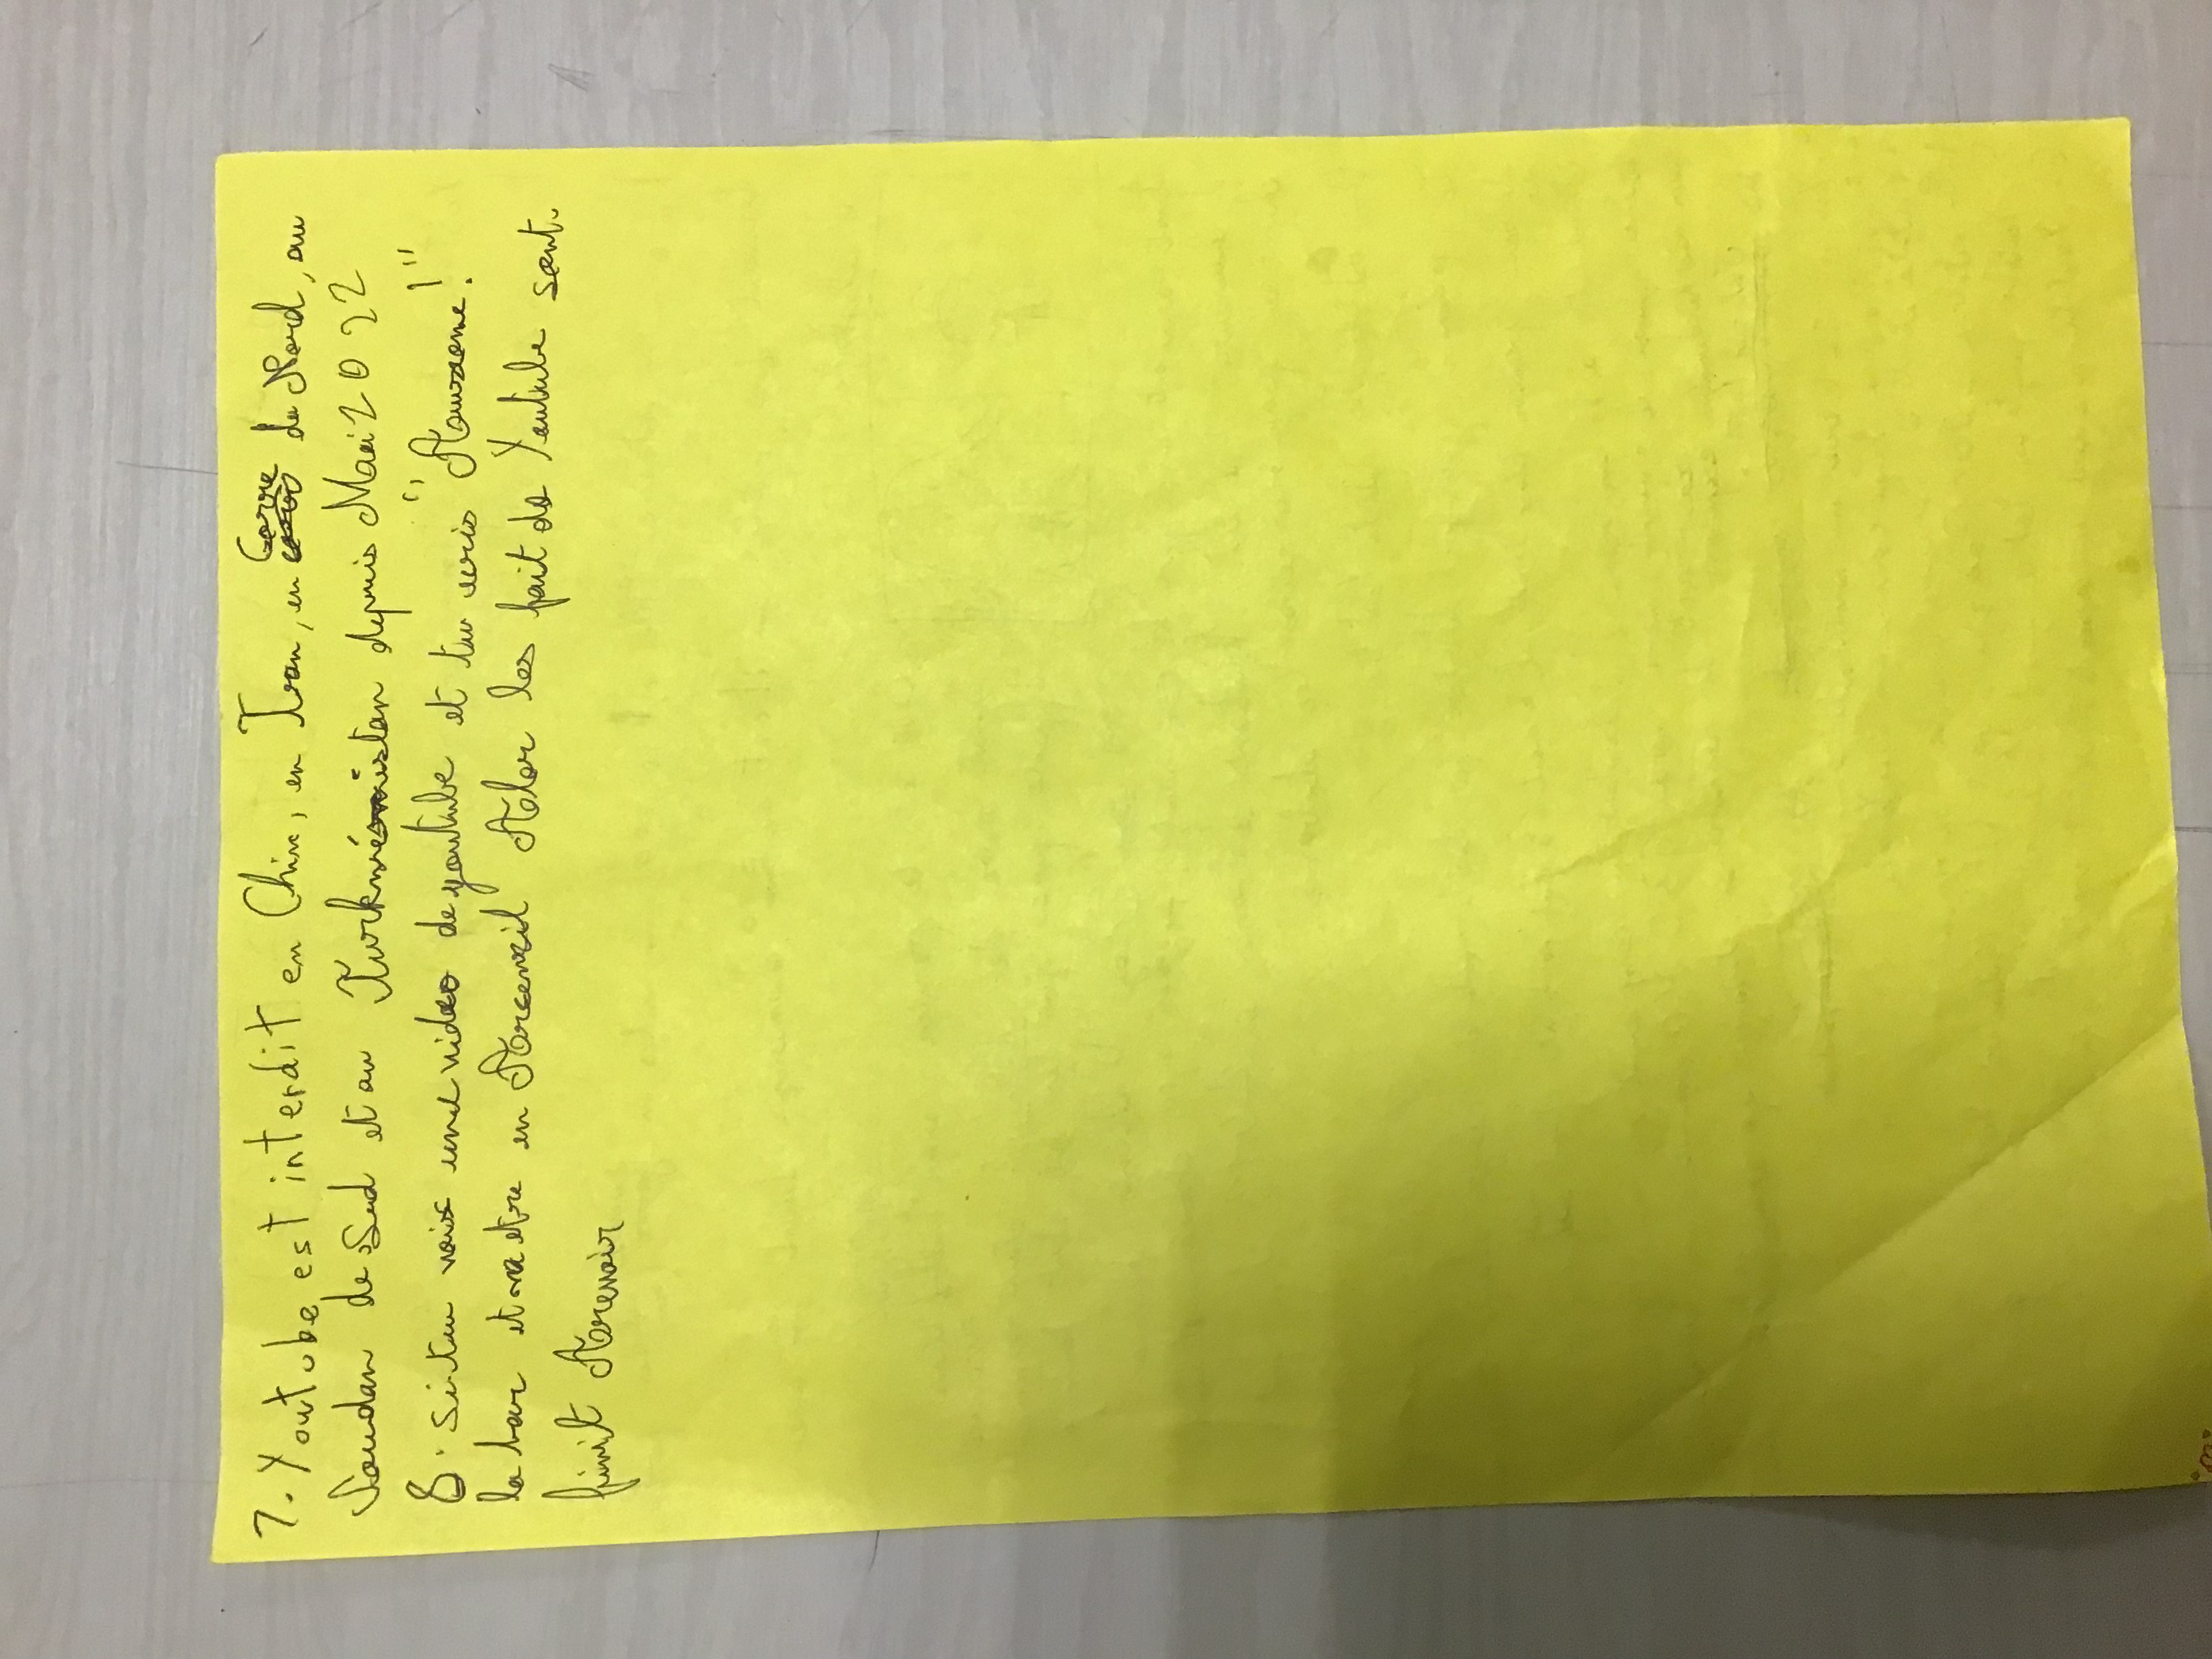 7. Youtube est interdit en Chin, en Iran, en Corre du Nord, au
Soudan de Sud et au Turkménistan depuis Mai 2022
8. Si tu voix une video de youtube et tu ecris "Aowsome!"
la bar et va etre en Arcenciel Alor les fait de Youtube sont
finit Arevoir